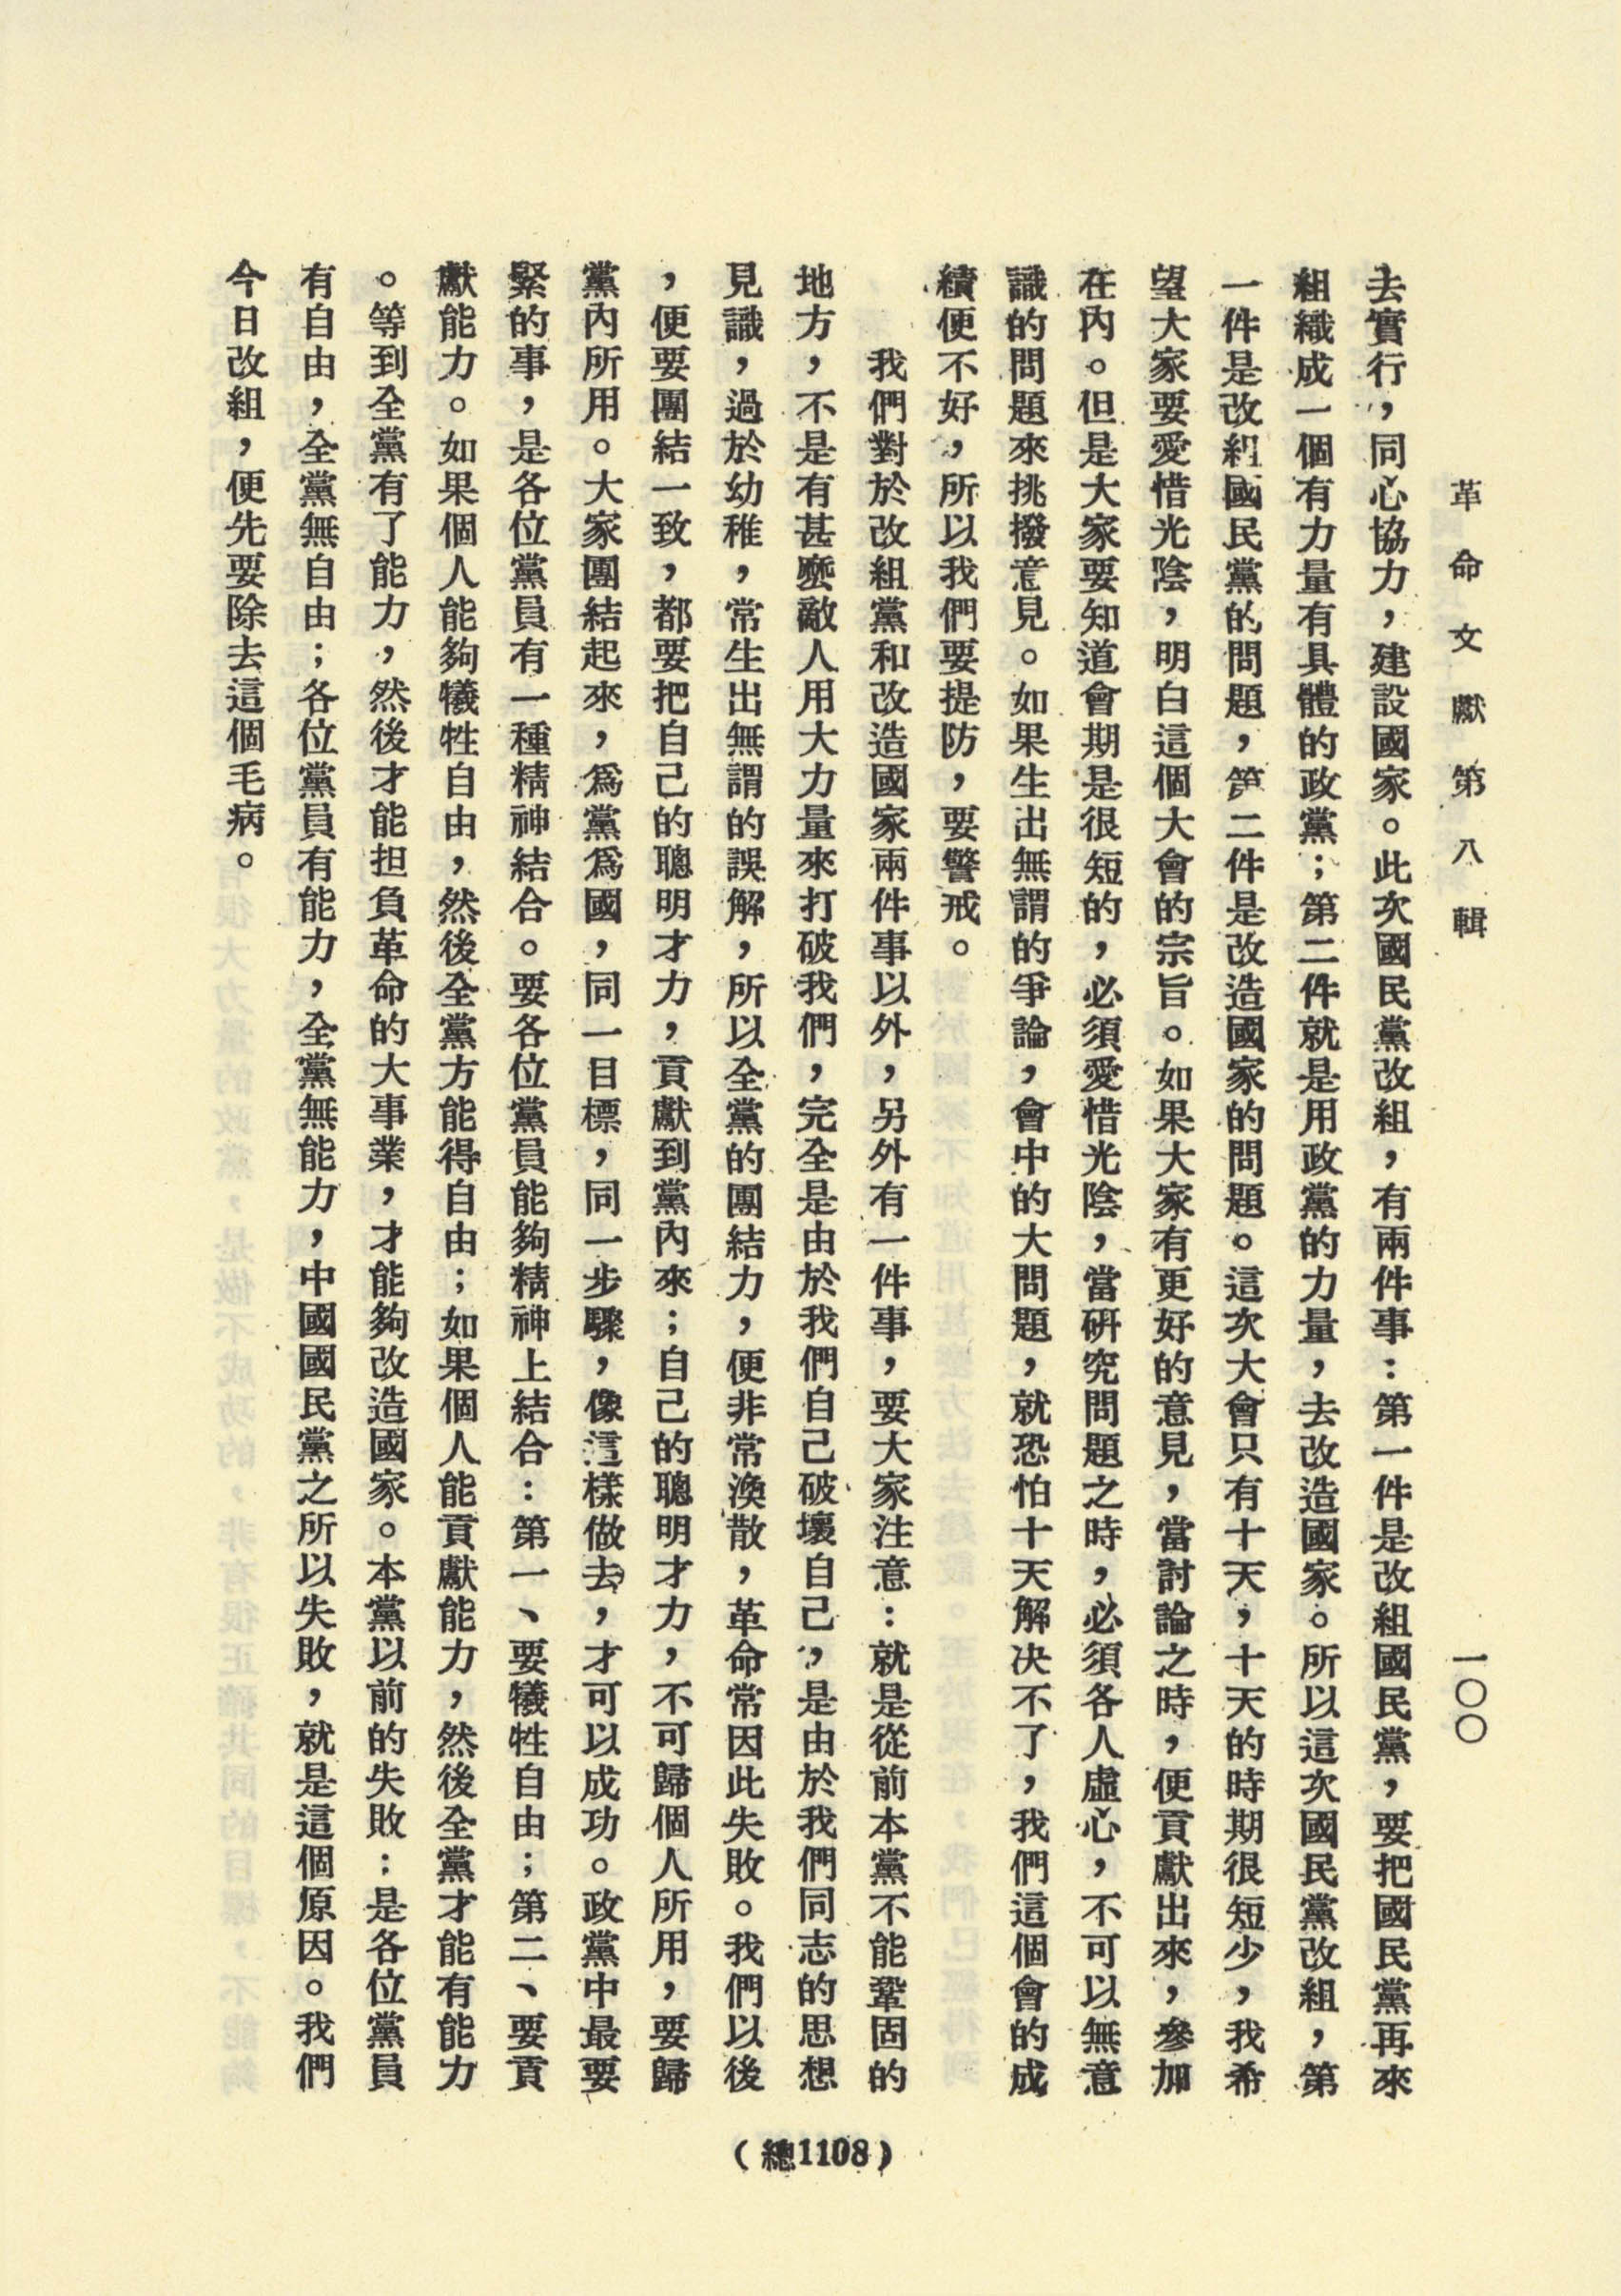 革命文獻第八輯
一〇〇
去實行，同心協力，建設國家。此次國民黨改組，有兩件事：第一件是改組國民黨，要把國民黨再來
組織成一個有力量有具體的政黨；第二件就是用政黨的力量，去改造國家。所以這次國民黨改組，第
一件是改組國民黨的問題，第二件是改造國家的問題。這次大會只有十天，十天的時期很短少，我希
望大家要愛惜光陰，明白這個大會的宗旨。如果大家有更好的意見，當討論之時，便貢獻出來，參加
在內。但是大家要知道會期是很短的，必須愛惜光陰，當研究問題之時，必須各人虛心，不可以無意
識的問題來挑撥意見。如果生出無謂的爭論，會中的大問題，就恐怕十天解決不了，我們這個會的成
績便不好，所以我們要提防，要警戒。
我們對於改組黨和改造國家兩件事以外，另外有一件事，要大家注意：就是從前本黨不能鞏固的
地方，不是有甚麼敵人用大力量來打破我們，完全是由於我們自己破壞自己，是由於我們同志的思想
見識，過於幼稚，常生出無謂的誤解，所以全黨的團結力，便非常渙散，革命常因此失敗。我們以後
，便要團結一致，都要把自己的聰明才力，貢獻到黨內來；自己的聰明才力，不可歸個人所用，要歸
黨內所用。大家團結起來，爲黨爲國，同一目標，同一步驟，像這樣做去，才可以成功。政黨中最要
緊的事，是各位黨員有一種精神結合。要各位黨員能夠精神上結合：第一、要犧牲自由；第二、要貢
獻能力。如果個人能夠犧牲自由，然後全黨方能得自由；如果個人能貢獻能力，然後全黨才能有能力
。等到全黨有了能力，然後才能担負革命的大事業，才能夠改造國家。本黨以前的失敗；是各位黨員
有自由，全黨無自由；各位黨員有能力，全黨無能力，中國國民黨之所以失敗，就是這個原因。我們
今日改組，便先要除去這個毛病。
（總1108）